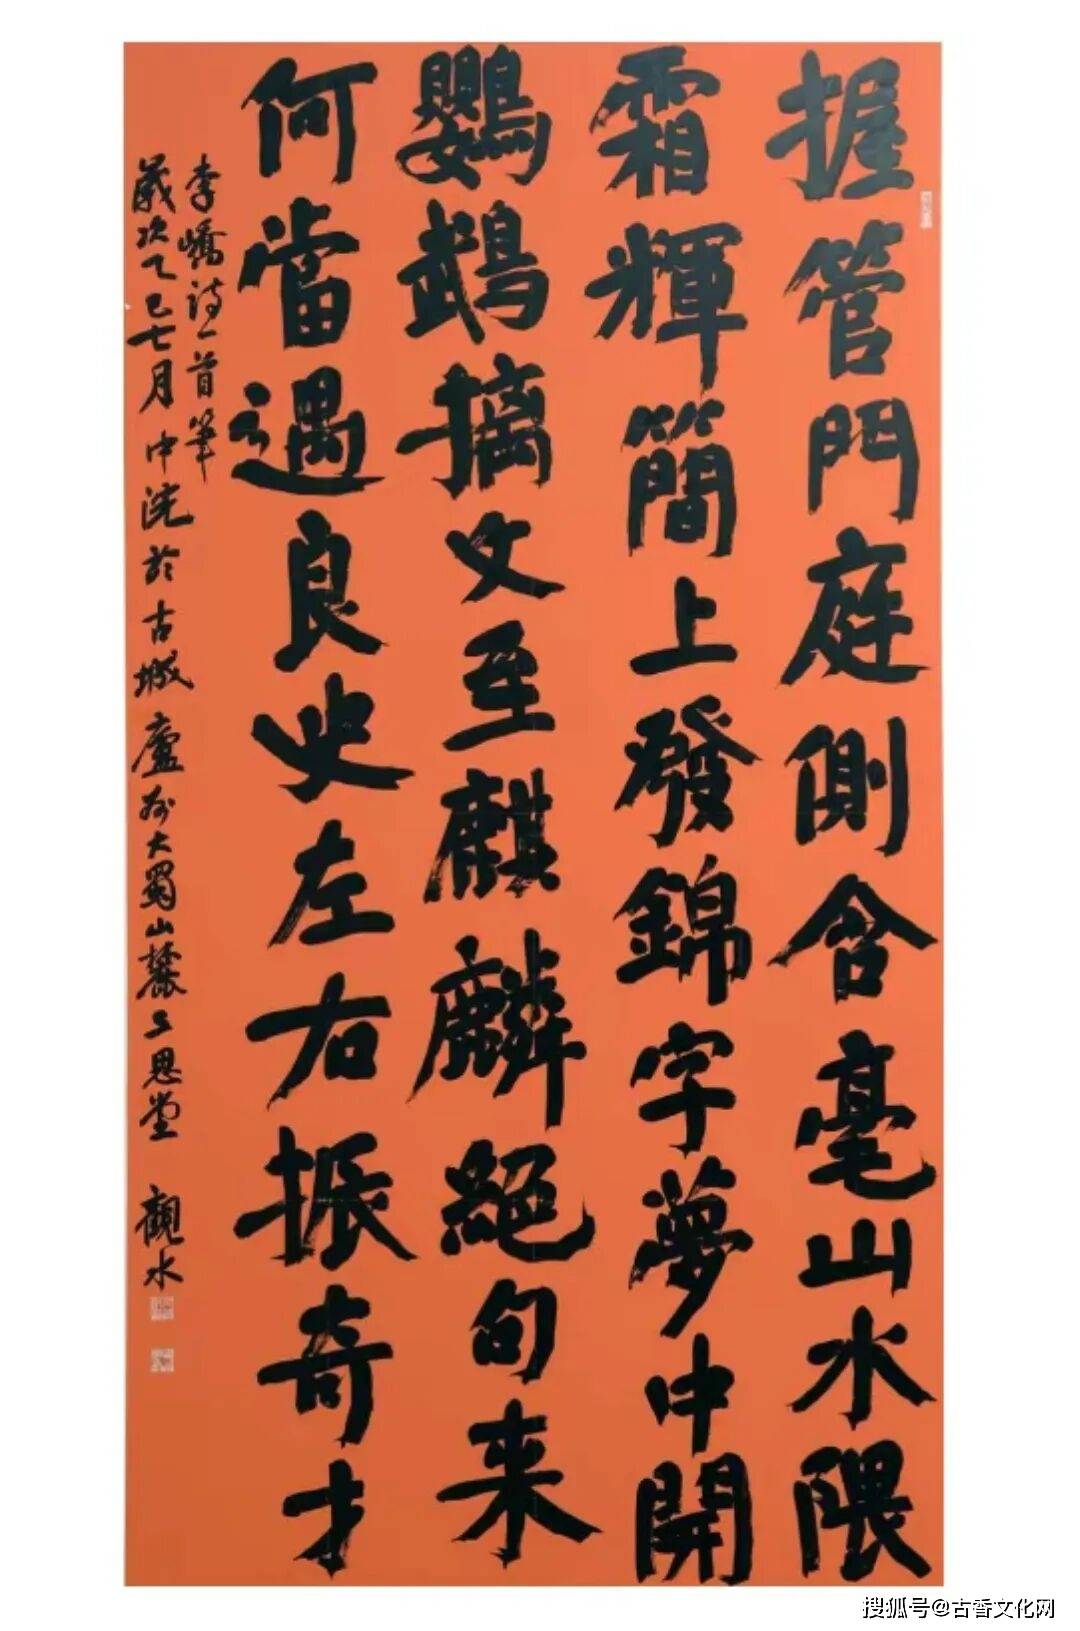 握管門庭側含毫山水隈
霜輝簡上發錦字夢中開
鸚鵡摛文至麒麟絕句来
何當遇良史左右振奇才
李嶠詩一首筆
歲次乙巳七月中浣於古城廬州大蜀山麓恩堂 觀水
搜狐号@古香文化网